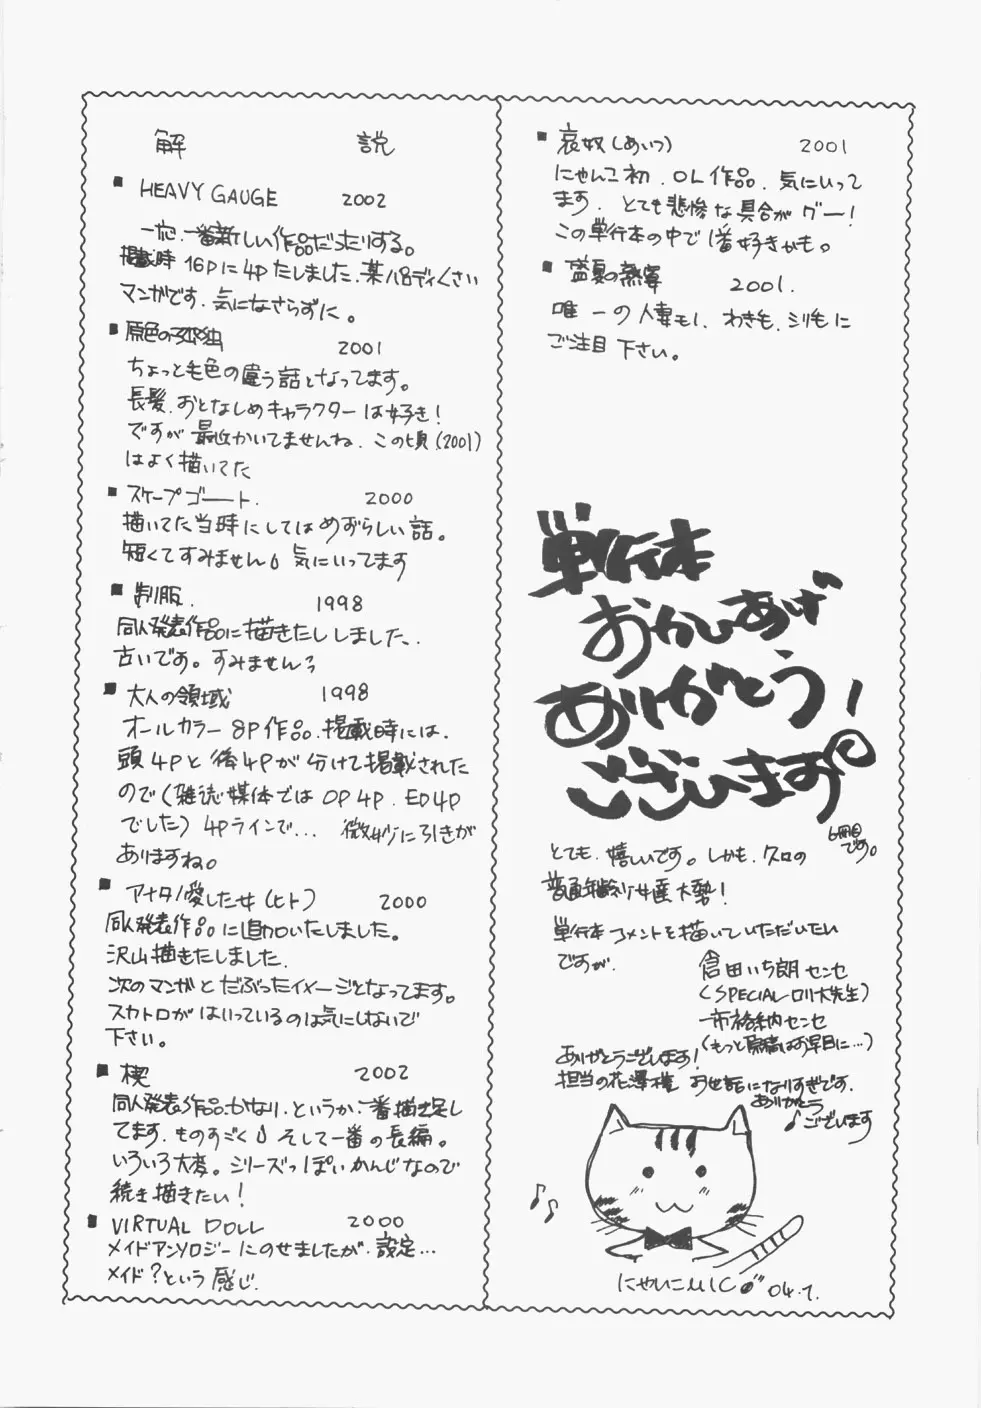 解説
■ HEAVY GAUGE 2002
一応、一番新しい作品だったりする。
掲載時16Pに4Pたしました、某パロディくさい
マンガです、気になさらずに。
■ 原色の孤独
2001
ちょっと毛色の違う話となってます。
長髪、おとなしめキャラクターは好き!
ですが最近かいてませんね、この頃(2001)
はよく描いてた
■ スケープゴート. 2000
描いてた当時にしてはめずらしい話。
短くてすみません 気にいってます
■ 制服. 1998
同人発表作品に描きたししました、
古いです。すみませんっ
■ 大人の領域 1998
オールカラー8P作品、掲載時には、
頭4Pと後4Pが分けて掲載された
ので(雑誌媒体ではOP4P、ED4P
でした)4Pラインで… 微妙に引きが
ありますね。
■ アナタノ愛した女(ヒト) 2000
同人発表作品に追加いたしました。
沢山描きたしました、
次のマンガとだぶったイメージとなってます。
スカトロがはいっているのは気にしないで
下さい。
■ 楔 2002
同人発表作品、かなり、というか、一番描き足し
てます、ものすごく そして一番の長編。
いろいろ大変。シリーズっぽいかんじなので
続き描きたい!
■ VIRTUAL DOLL 2000
メイドアンソロジーにのせましたが、設定…
メイド?という感じ.
■ 哀奴(あいつ) 2001
にゃんこ初、OL作品、気にいって
ます、とても悲惨な具合がグー!
この単行本の中で1番好きかも。
■ 盛夏の熱宴 2001.
唯一の人妻もし、わき毛、シリ毛に
ご注目下さい。
単行本
おかいあげ
ありがとう!
ございます
6冊目
です。
とても、嬉しいです。しかも、クロの
普通年齢の女達大勢!
単行本コメントを描いていただいたい
ですが、
倉田いち朗センセ
(SPECIALロリ大先生)
市
納センセ
(もっと原稿はお早目に…)
ありがとうございます!
担当の花澤様 お世話になりすぎです、
ありがとう
♪ございます
にゃんこMIC 04.7.